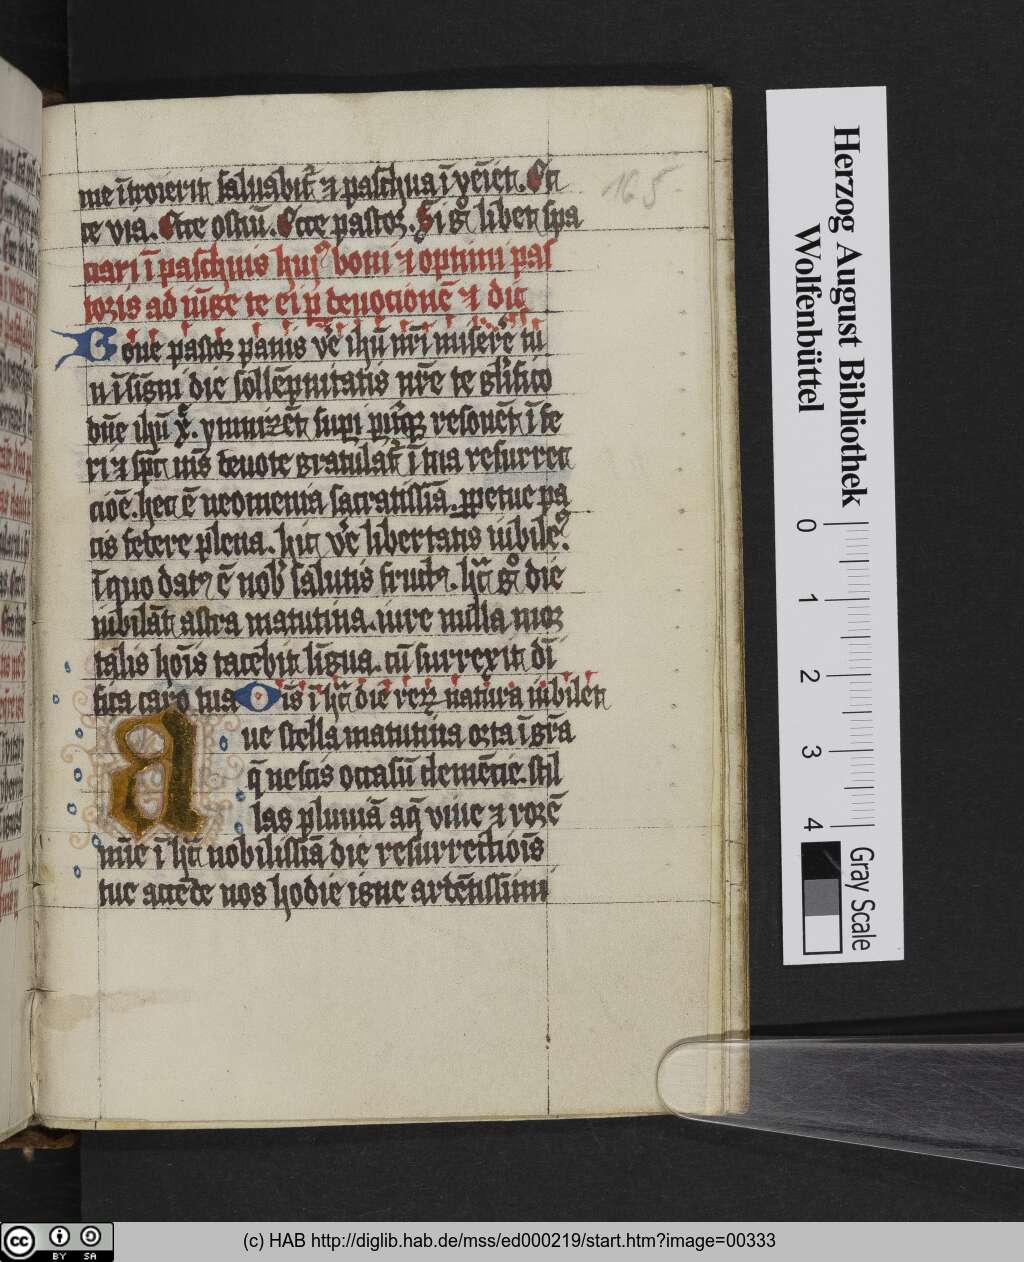 me ītroierit saluabit᷑ ⁊ pascua ī veīet. Ec
ce via. Ecce ostiū. Ecce pastor. Si gͦ libet spa
ciari ī pascuis huiꝰ boni ⁊ optimi pas
toris ad iūge te ei ꝑ deuocionē ⁊ dic
Bone pastor panis vē ihū nr̄i miserē tu
n īsigni die sollēpnitatis nr̄e te glīfico
dn̄e ihū xp̄e. ymnizēt
ri ⁊ sp̄c uīs deuote gratulat᷑ ī tua resurrec
cioē. hec ē neomenia sacratissīa ꝑpetue pa
cis fetere plena. hic vē libertatis iubileꝰ.
ī quo datꝰ ē nob̄ salutis fructꝰ. hac gͦ die
iubilāt astra matutina. iure nulla mor
talis hoīs tacebit līgua. cū surrexit dī
fica caro tua Oīs ī hac die rerꝝ natura iubilet
Aue stella matutina orta ī grā
q̄ nescis occasū clemēcie. stil
las pluuiā aq̄ viue ⁊ rorē
nūe ī hac nobilissīa die resurrectiōis
tue accēde nos hodie igne ardētissimi
165
Herzog August Bibliothek
Wolfenbüttel
0 1 2 3 4
Gray Scale
cc BY SA
(c) HAB http://diglib.hab.de/mss/ed000219/start.htm?image=00333